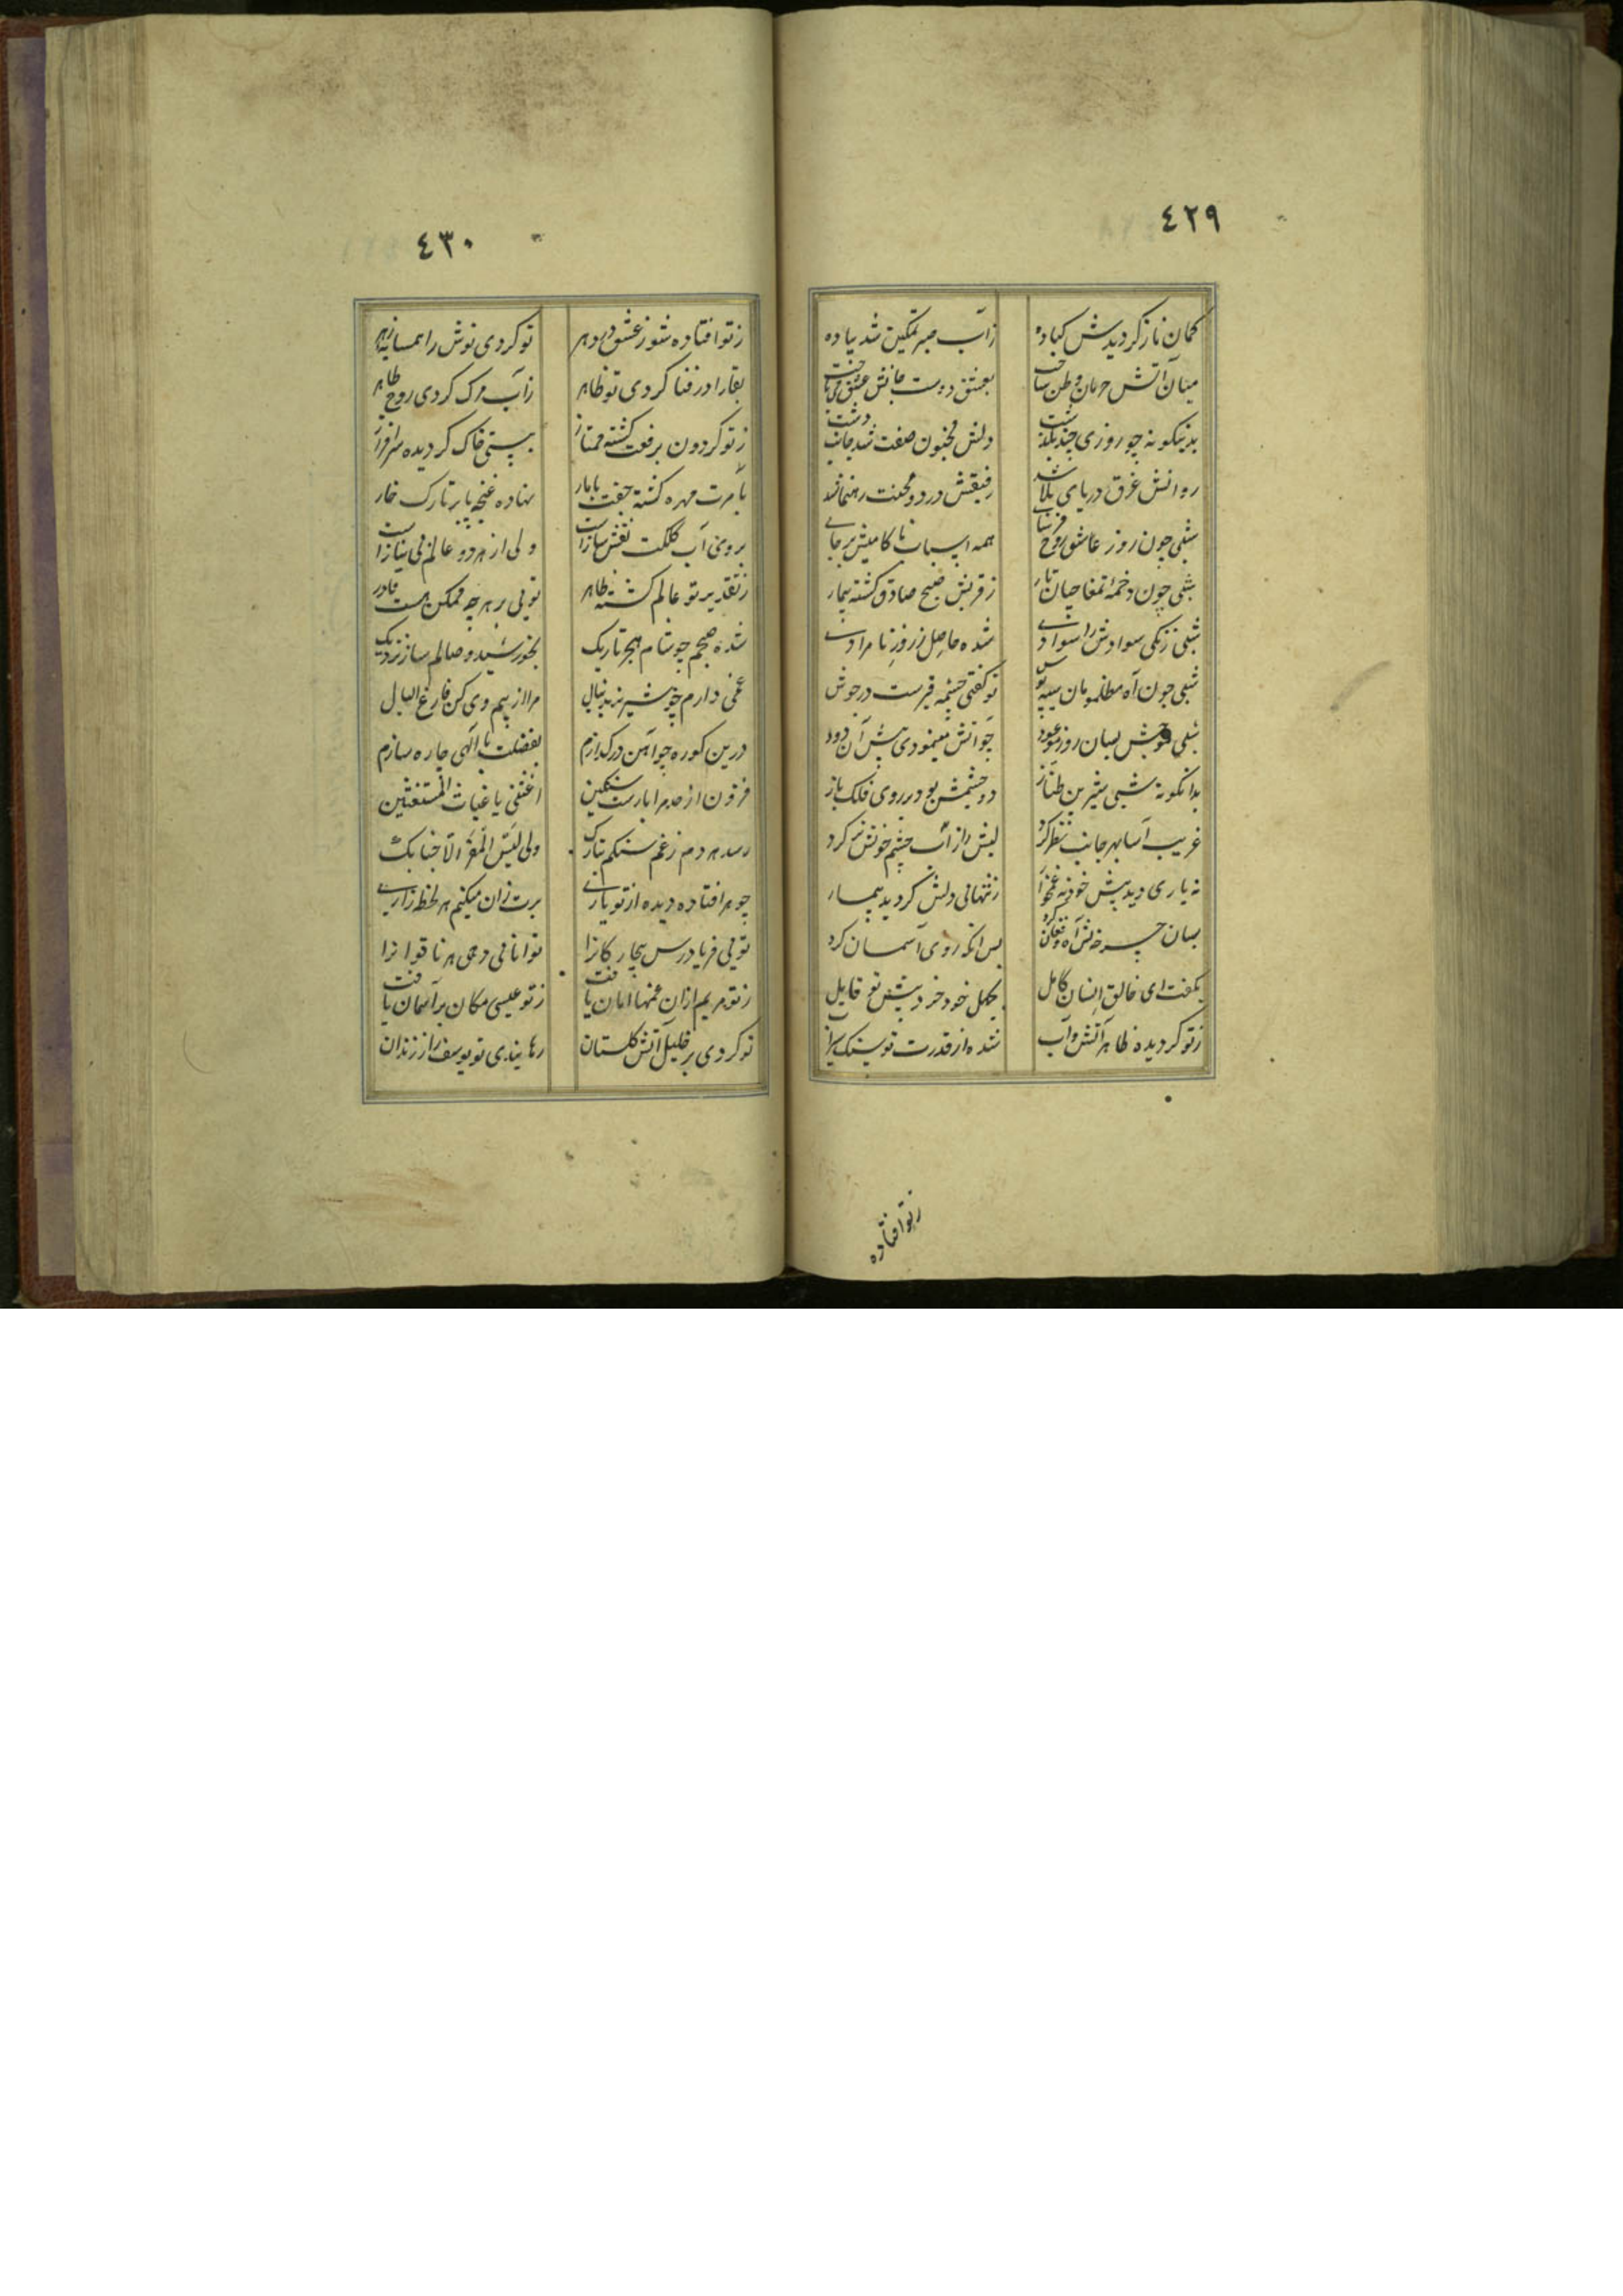 ٤٢٩
کمان ناز کردیدش کباده زاسب صبر تمکین شد پیاده
میان آتش حرمان وطن ساخت بعشق دوست جانش عشق می باخت
بدینکونه چو روزی چند بگذشت دلش مجنون صفت شد جانب دشت
روانش غرق دریای بلا شد رفیقش درد و محنت رهنما شد
شبی چون روز عاشق روح فرسای همه اسباب ناکامیش بر جای
شبی چون دخمه تمغاچیان تار ز قربش صبح صادق کشته بیمار
شبی زنکی سوادش را سوادی شده حاصل ز روز نامرادی
شبی چون آه مظلومان سیه پوش تو کفتی چشمه قیرست در جوش
شبی موحش بسان روز موعود چو آتش مینمودی پیش آن دود
بدانکونه شبی شیرین طناز دو چشمش بود بر روی فلک باز
غریب آسا بهر جانب نظر کرد لبش را از آب چشم خویش تر کرد
نه یاری دید پیش خود نه غمخوار ز تنهائی دلش کردید بیمار
بسان چرخ بس آه و فغان کرد پس آنکه روی آسمان کرد
بکفت ای خالق انسان کامل بجهل خود خرد پیش تو قایل
ز تو کردیده ظاهر آتش و آب شده از قدرت تو سنک سیراب
ز تو افتاده
٤٣٠
ز تو افتاده شور عشق در دهر تو کردی نوش را همسایه زهر
بقا را در فنا کردی تو ظاهر ز آب مرک کردی روح طاهر
ز تو کردون برفعت کشته ممتاز بپستی خاک کردیده سرافراز
بامرت مهره کشته جفت با مار نهاده غنچه پا بر تارک خار
بروی آب کلکت نقش سازست ولی از هر دو عالم بی نیازست
ز تقدیر تو عالم کشته ظاهر توئی بر هر چه ممکن هست قادر
شده صبحم چو شام هجر تاریک بخورشید وصالم ساز نزدیک
غمی دارم چو شیر تند دنبال مرا از بیم وی کن فارغ البال
درین کوره چو آهن در کدازم بفضلت یا الهی چاره سازم
فزون از حد مرا بارست سنکین اغثنی یا غیاث المستغثین
رسد هر دم ز غم سنکم بتارک ولی لیس المفر الا جنابک
چو هر افتاده دیده از تو یاری برت زان میکنم هر لحظه زاری
توئی فریادرس بیچارکانرا توانائی دهی هر ناتوانرا
ز تو مریم از ان غمها امان یافت ز تو عیسی مکان بر آسمان یافت
تو کردی بر خلیل آتش کلستان رهانیدی تو یوسف را ز زندان